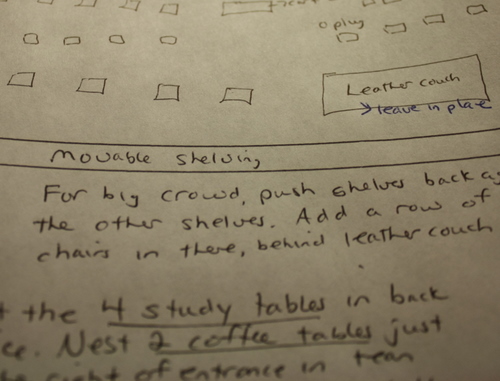 plug
Leather couch
→ leave in place
Movable shelving
For big crowd, push shelves back
the other shelves. Add a row of
chairs in there, behind leather couch
the 4 study tables in back
Nest 2 coffee tables just
right of entrance in teen